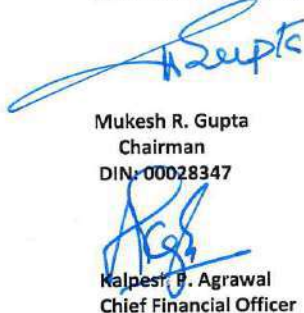 Gupta
Mukesh R. Gupta
Chairman
DIN: 00028347
Kalpesh P. Agrawal
Chief Financial Officer